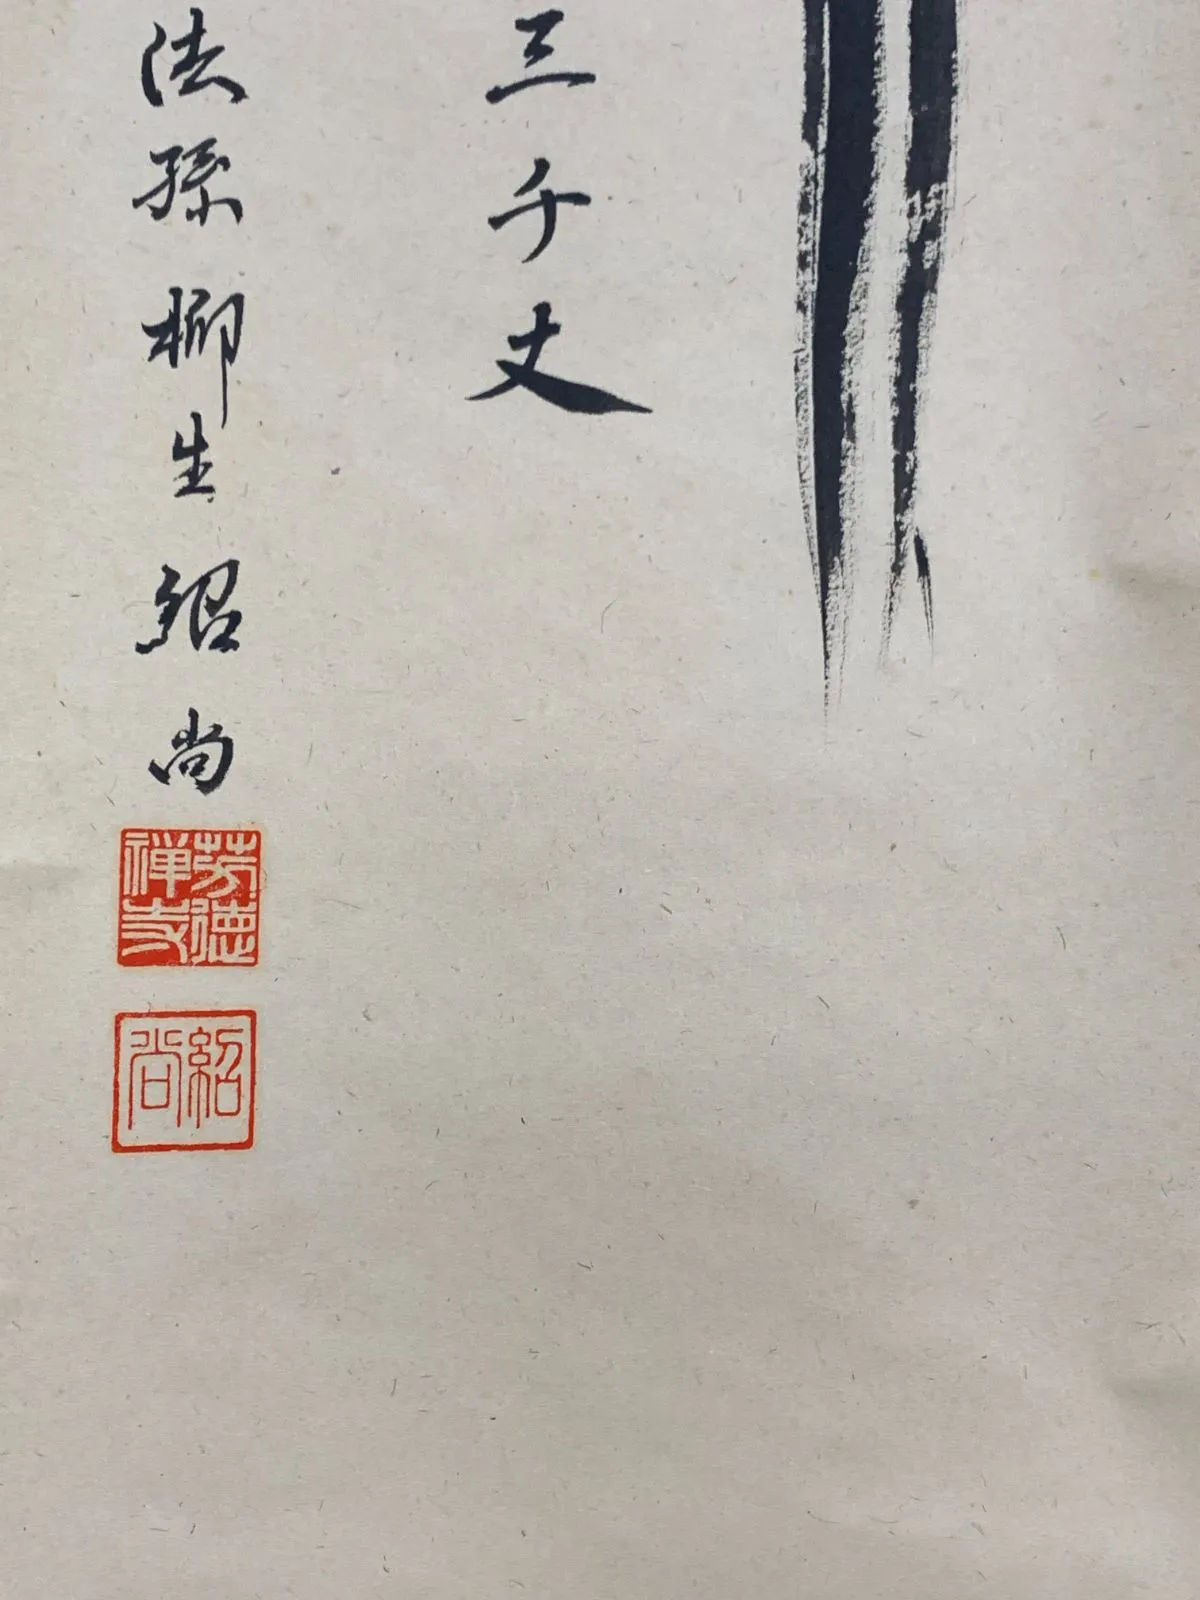 三千丈
法孫柳生紹尚
芳徳禅寺
紹尚